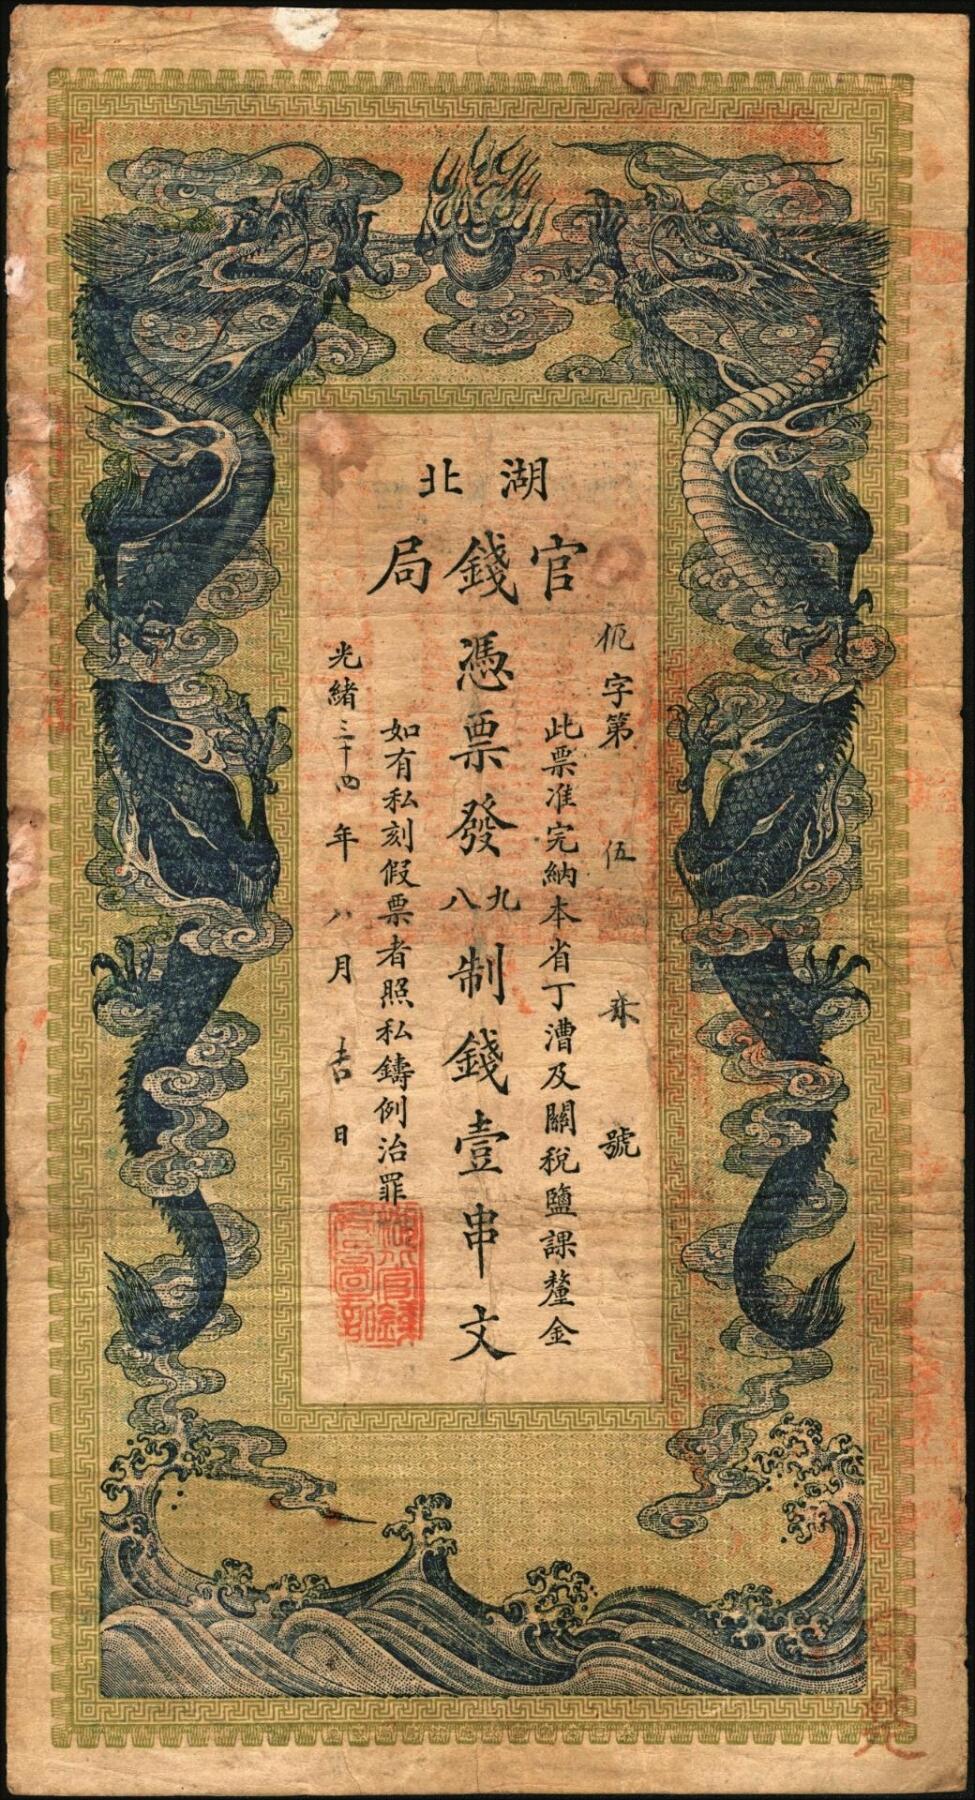 湖北
官錢局
字第 伍 號
此票准完納本省丁漕及關税鹽課釐金
憑票發九八制錢壹串文
如有私刻假票者照私鑄例治罪
光緒三十四年八月吉日